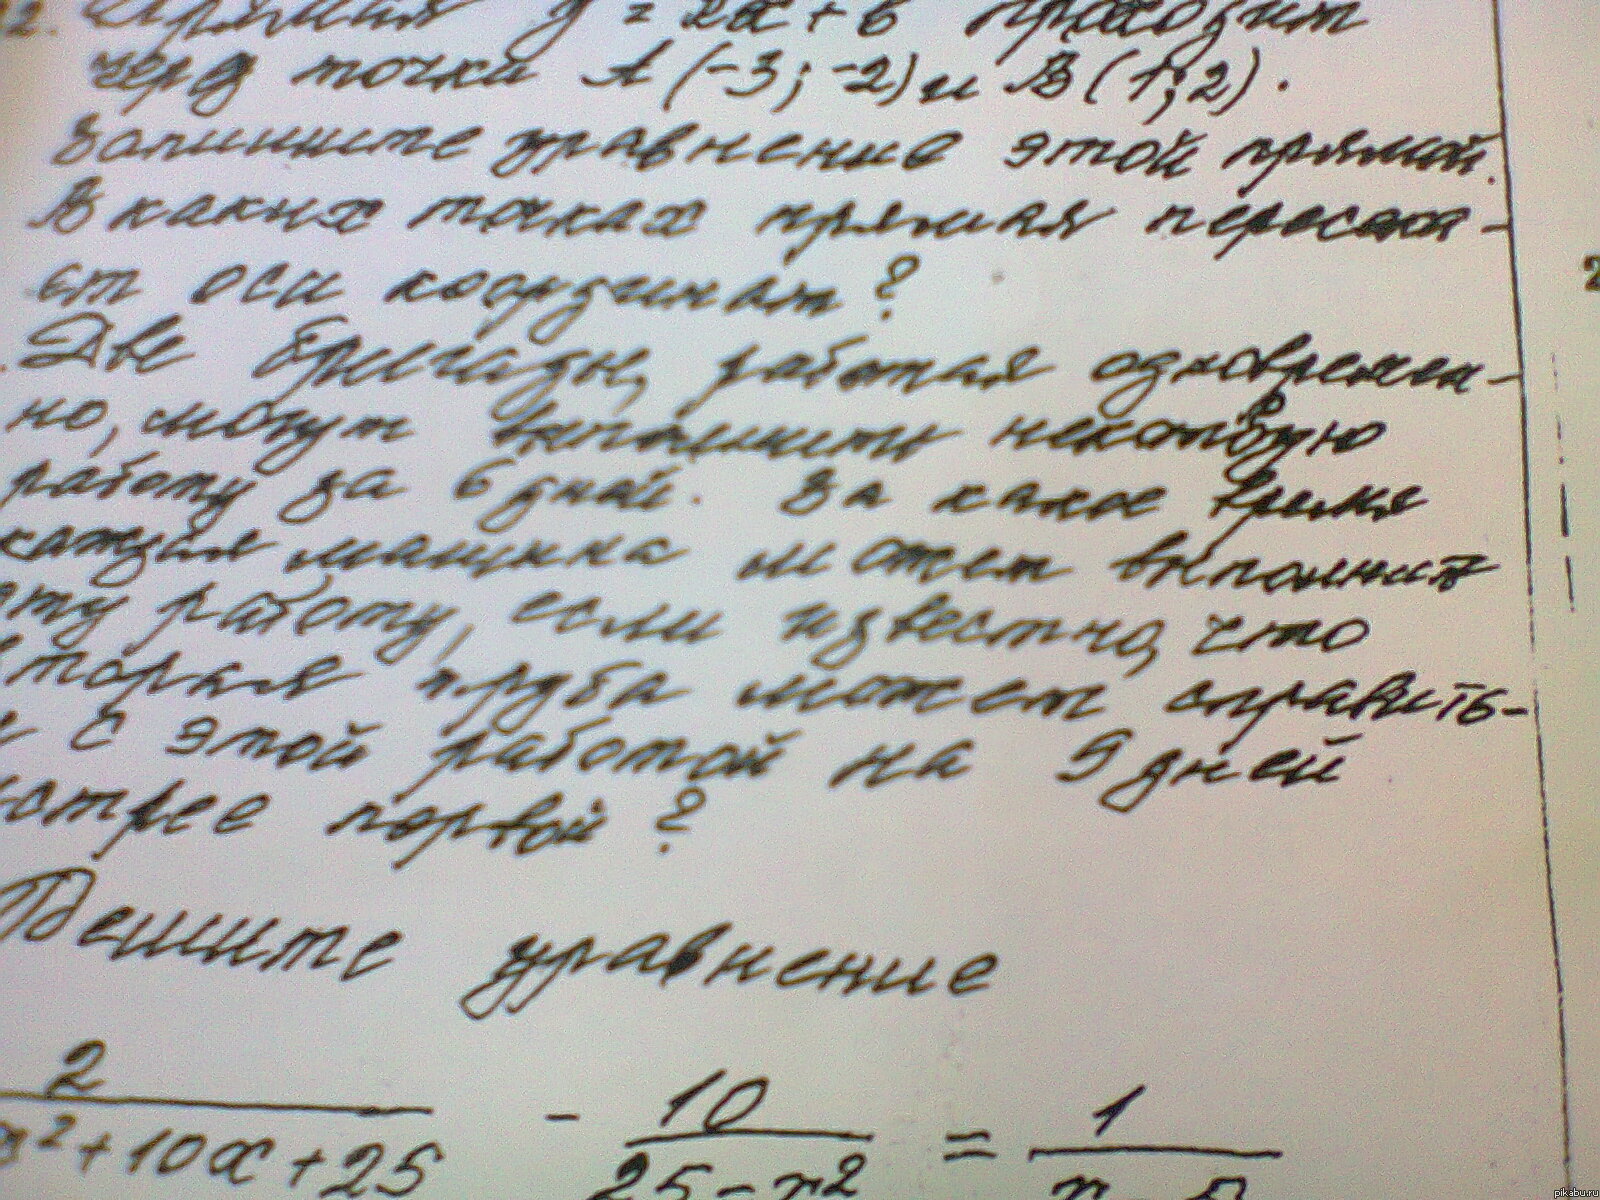 2. Прямая y = 2x + b проходит
через точки A (-3; -2) и B (1; 2).
Запишите уравнение этой прямой.
В каких точках прямая пересека-
ет оси координат?
. Две бригады, работая одновремен-
но, могут выполнить некоторую
работу за 6 дней. За какое время
каждая машина может выполнить
эту работу, если известно, что
вторая труба может справить-
с этой работой на 9 дней
ыстрее первой?
Решите уравнение
2 / x² + 10x + 25 - 10 / 25 - x² = 1 / x - 5
2
pikabu.ru